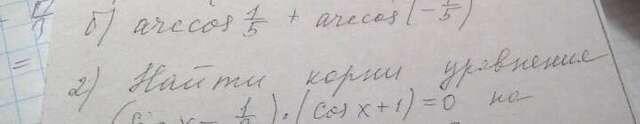 б) arccos 1/5 + arccos(-1/5)
=
2) Найти корни уравнения
(sin x - 1/2)·(cos x + 1) = 0 на